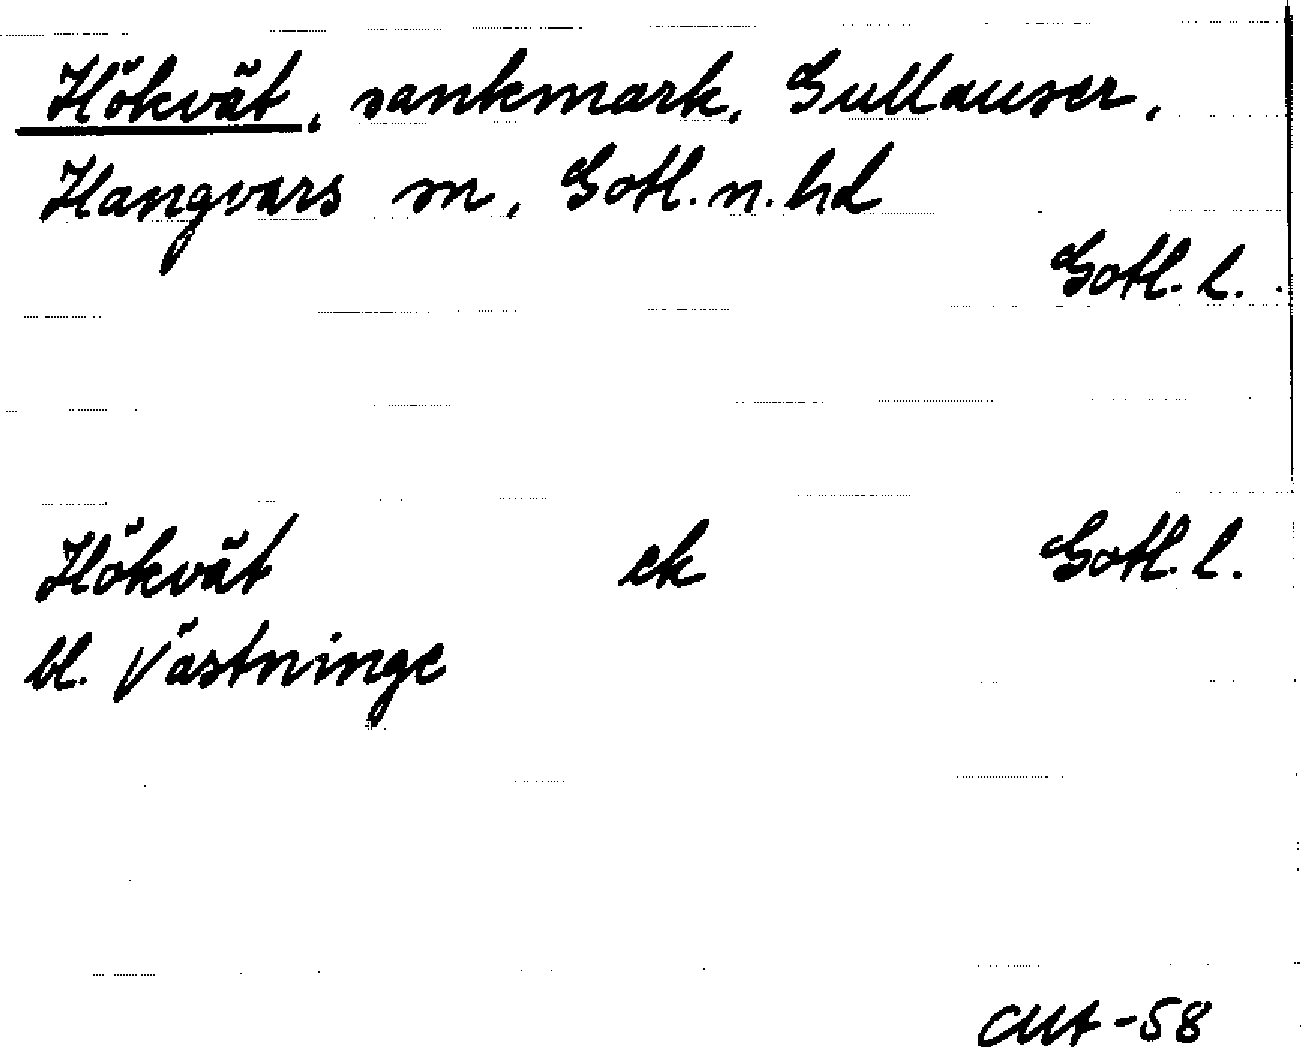 Hökvät, sankmark, Gullauser,
Hangvars sn, Gotl. n. hd
Gotl. l.
Hökvät ek Gotl. l.
bl. Västninge
CMA -58